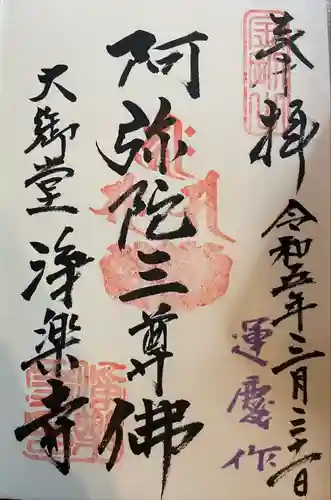 奉拝
令和五年三月三十一日
運慶作
阿弥陀三尊佛
大御堂 浄楽寺
金剛山